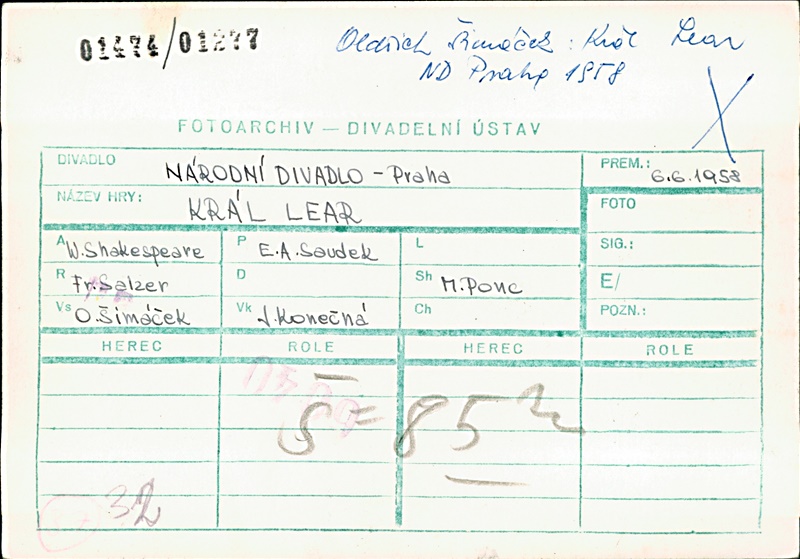 01474/01277
Oldřich Šimáček: Král Lear
ND Praha 1958
FOTOARCHIV — DIVADELNÍ ÚSTAV
DIVADLO NÁRODNÍ DIVADLO - Praha PREM.: 6.6.1958
NÁZEV HRY: KRÁL LEAR FOTO
A W. Shakespeare P E.A. Saudek L SIG.:
R Fr. Salzer D Sh M. Ponc E/
Vs O. Šimáček Vk J. Konečná Ch POZN.:
HEREC ROLE HEREC ROLE
Š = 85
32